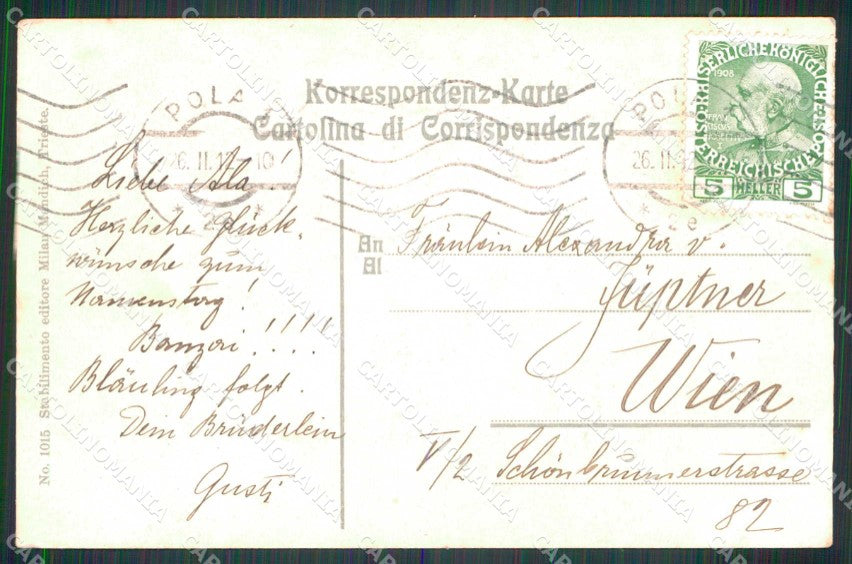 Korrespondenz-Karte
Cartolina di Corrispondenza
POLA
26. II. 1
10
POLA
26. II.
KAISERLICHE KÖNIGLICHE ÖSTERREICHISCHE POST
1908
5 HELLER 5
Liebe Ala!
Herzliche Glück-
wünsche zum
Namenstag!
Banzai!!!!
Bläuling folgt.
Dein Brüderlein
Gusti
An
Al
Fräulein Alexandra v.
Jüptner
Wien
V/2 Schönbrunnerstrasse
82
No. 1015 Stabilimento editore Milan Mandich, Trieste.
CARTOLINOMANIA